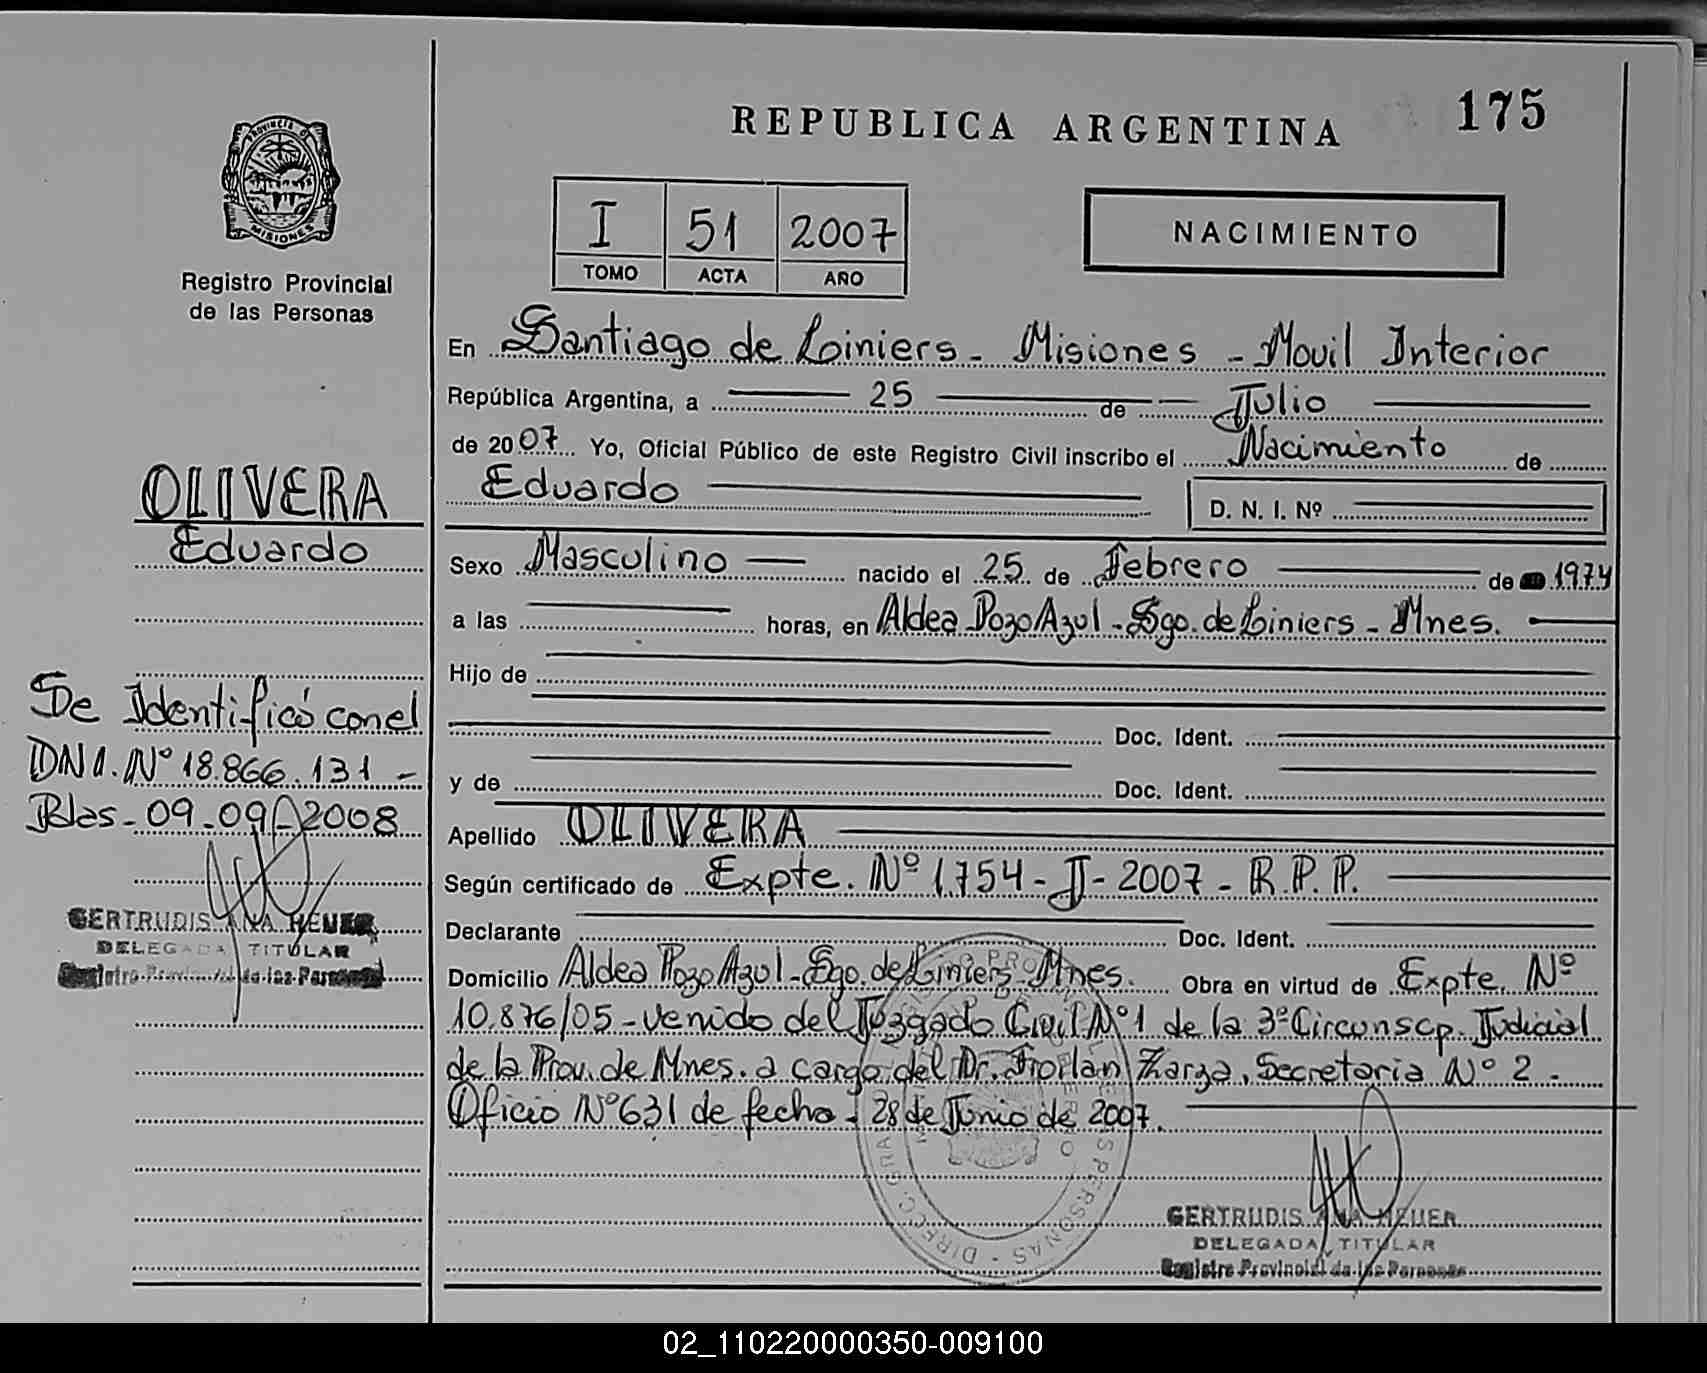 REPUBLICA ARGENTINA
175
PROVINCIA DE
MISIONES
Registro Provincial
de las Personas
I 51 2007
TOMO ACTA AÑO
NACIMIENTO
En Santiago de Liniers - Misiones - Movil Interior
República Argentina, a 25 de Julio
de 2007 Yo, Oficial Público de este Registro Civil inscribo el Nacimiento de
Eduardo D. N. I. Nº
Sexo Masculino nacido el 25 de Febrero de 1974
a las horas, en Aldea Pozo Azul - Sgo. de Liniers - Mnes.
Hijo de
Doc. Ident.
y de Doc. Ident.
Apellido OLIVERA
Según certificado de Expte. Nº 1.754 - J - 2007 - R.P.P.
Declarante Doc. Ident.
Domicilio Aldea Pozo Azul - Sgo. de Liniers - Mnes. Obra en virtud de Expte. Nº
10.876/05 - venido del Juzgado Civil Nº 1 de la 3º Circunscp. Judicial
de la Prov. de Mnes. a cargo del Dr. Froilan Zarza, Secretaria Nº 2 -
Oficio Nº 631 de fecha - 28 de Junio de 2007.
GERTRUDIS ANA HEUER
DELEGADA TITULAR
Registro Provincial de las Personas
OLIVERA
Eduardo
Se Identificó con el
DNI. Nº 18.866.131 -
Pdas - 09 - 09 - 2008
GERTRUDIS ANA HEUER
DELEGADA TITULAR
Registro Provincial de las Personas
02_110220000350-009100